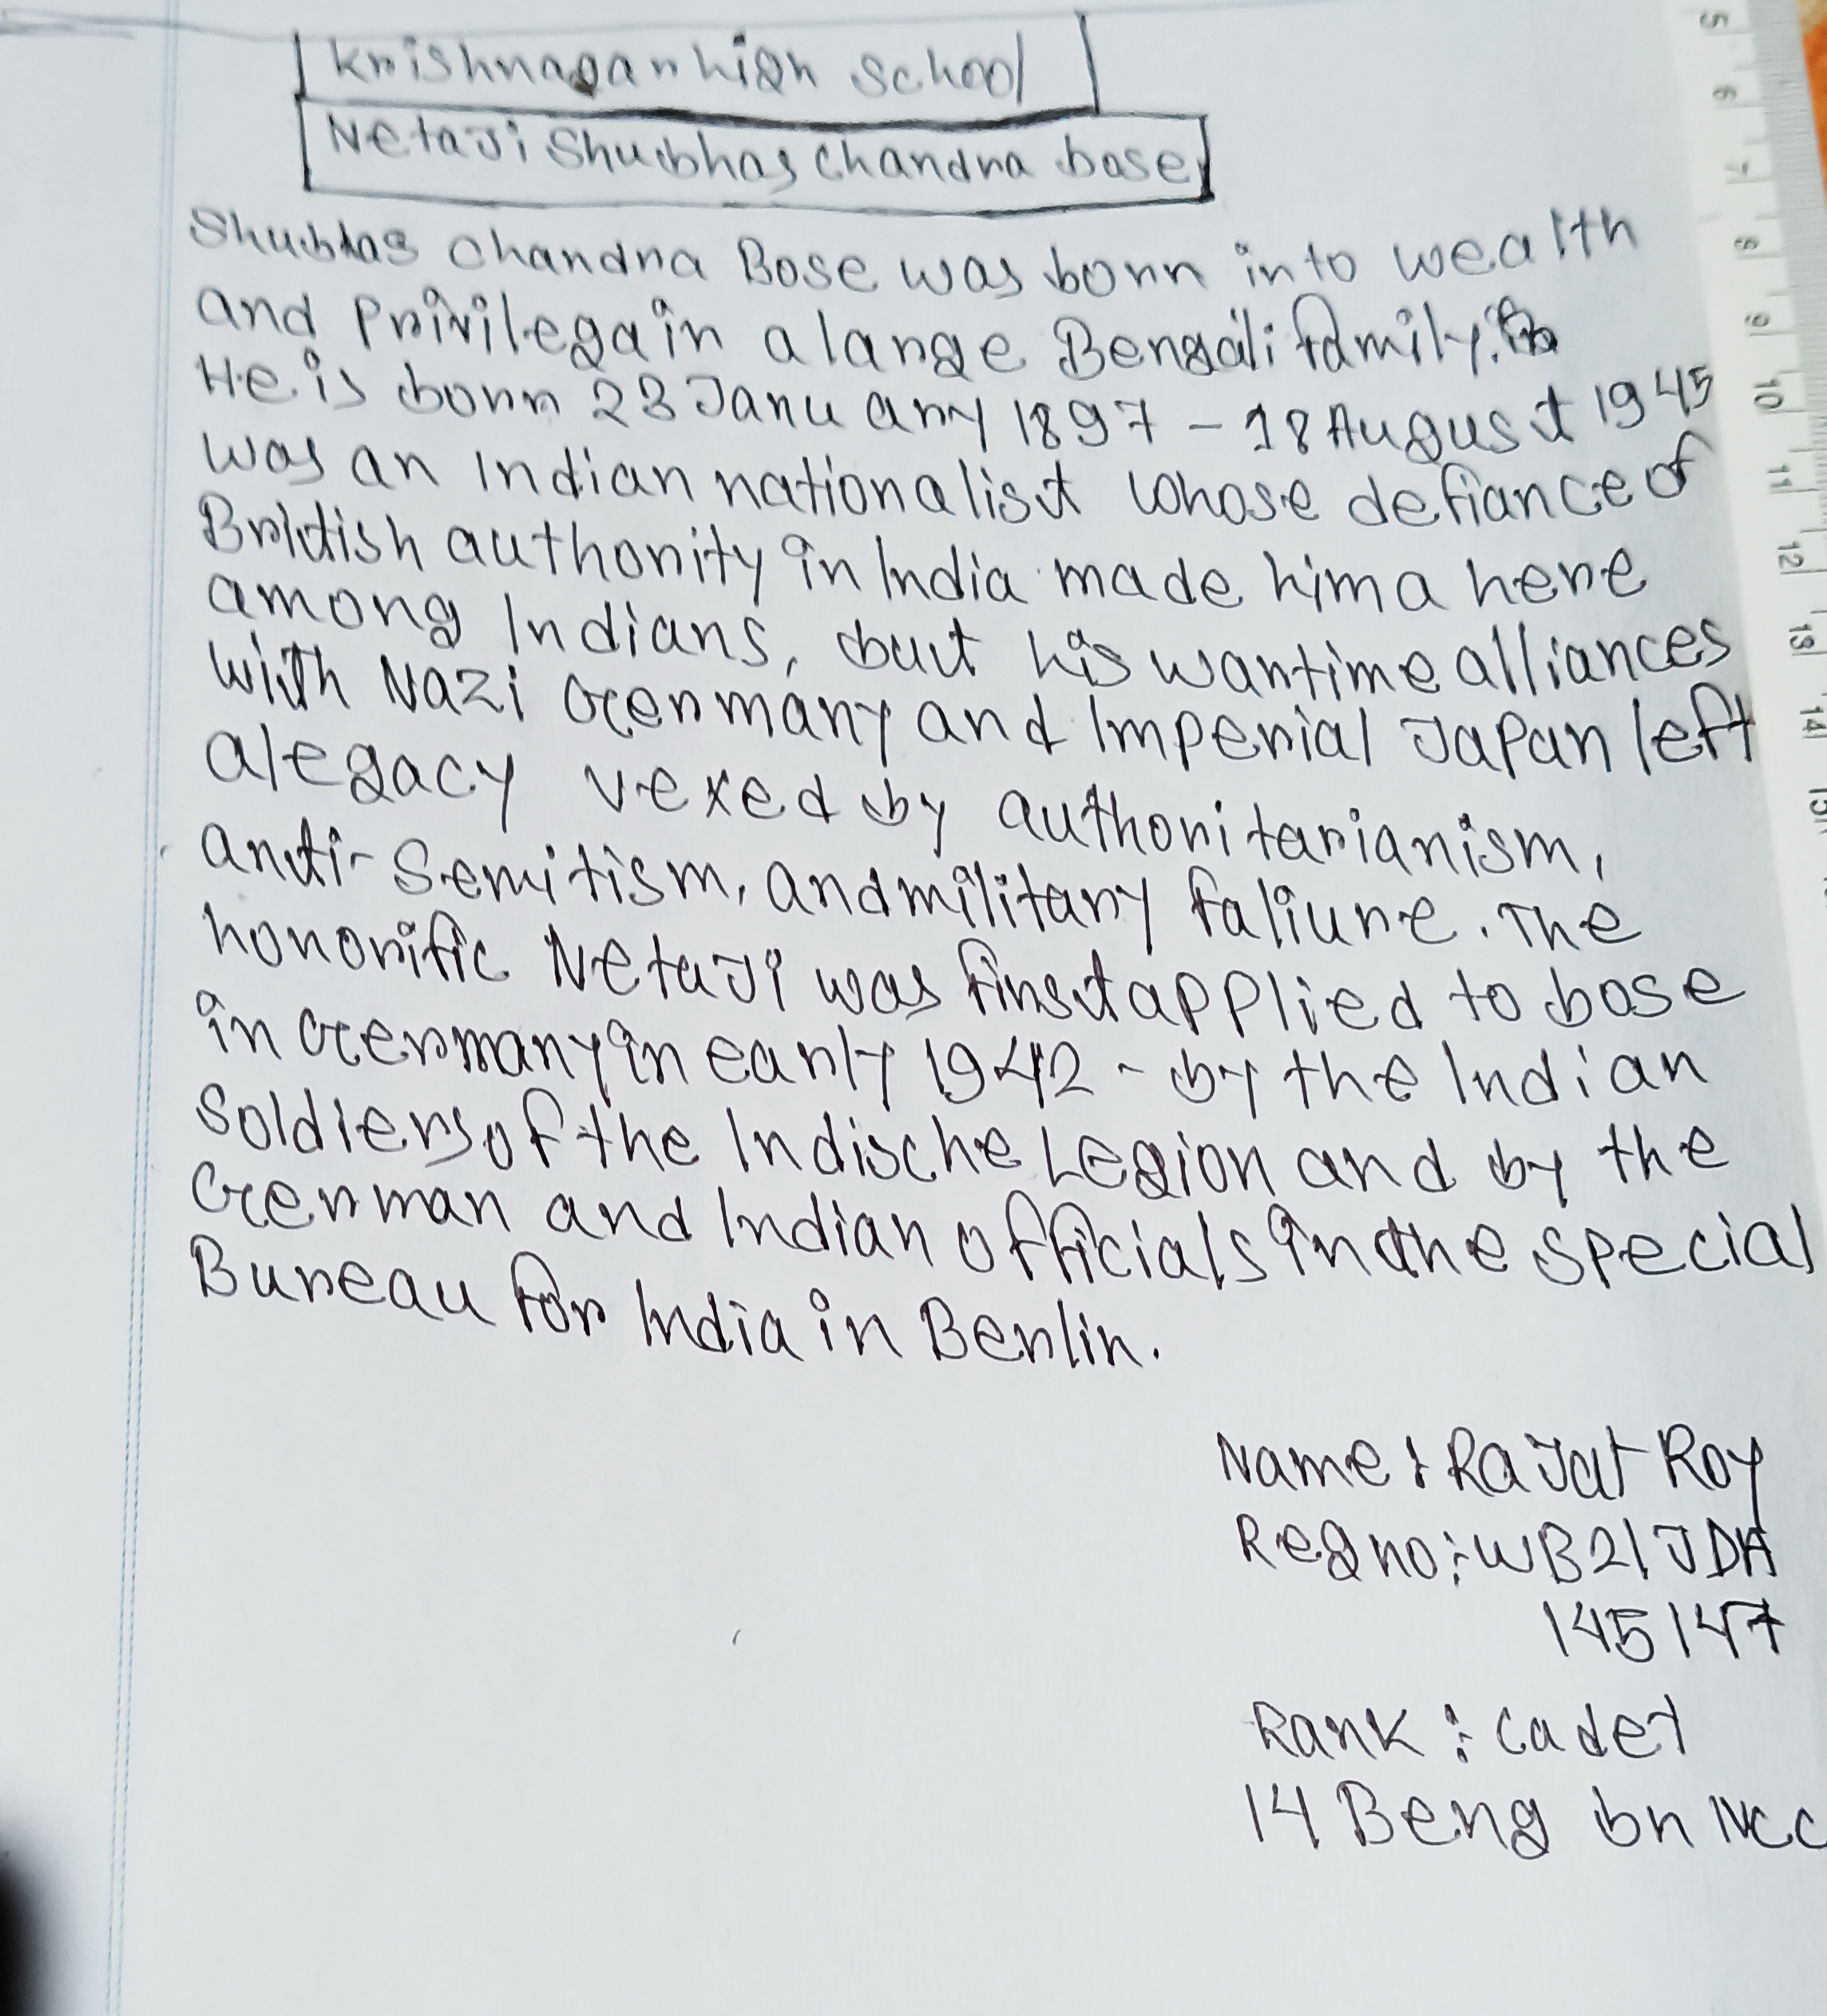 Krishnagar high School
Netaji Shubhas Chandra bose
Shubhas Chandra Bose was born into wealth
and Privilega in a large Bengali family.
He is born 23 January 1897 - 18 August 1945
was an Indian nationalist whose defiance of
British authority in India made him a here
among Indians, but his wartime alliances
with Nazi Germany and Imperial Japan left
a legacy vexed by authoritarianism,
anti-Semitism, and military faliure. The
honorific Netaji was first applied to bose
in Germany in early 1942 - by the Indian
Soldiers of the Indische Legion and by the
German and Indian officials in the special
Bureau for India in Berlin.
Name : Rajat Roy
Reg no : WB21JDA
145147
Rank : cadet
14 Beng bn NCC
5
6
7
8
9
10
11
12
13
14
15